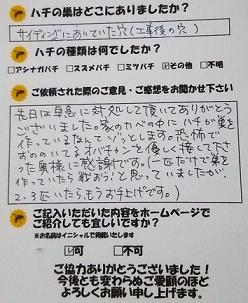 ハチの巣はどこにありましたか?
サイディングにあいていた穴(工事後の穴)
ハチの種類は何でしたか?
□アシナガバチ □スズメバチ □ミツバチ ☑その他 □不明
ご依頼された際のご意見・ご感想をお聞かせ下さい
先日は早急に対処して頂いてありがとう
ございました。家のかべの中にハチが巣を
作っているなんてゾッとします。恐怖で
すののいてるオバチャンを優しく接して下さ
った奥様に感謝です。(一匹だけで巣を
作っていたら戦おう!と思っていましたが、
2-3匹いたらもうお手上げです。)
ご記入いただいた内容をホームページで
ご紹介しても宜しいですか?
※お名前はイニシャルで掲載いたします
☑可 □不可
ご協力ありがとうございました!
今後とも変わらぬご愛顧のほど
よろしくお願い申し上げます。